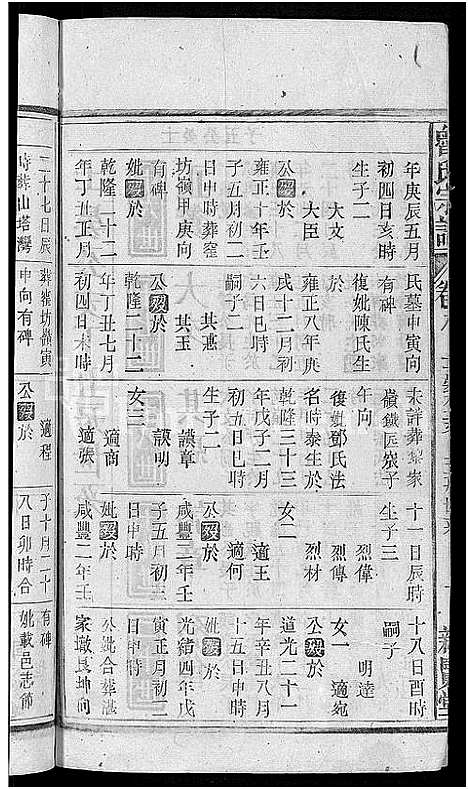 年庚辰五月
初四日亥時
生子二
大文
大臣
雍正十年壬
子五月初二
日申時葬窑
坊嶺甲庚向
有碑
妣歿於
乾隆二十二
年丁丑正月
二十七日辰
時葬山塔灣
氏墓申寅向
有碑
復妣陳氏生
於
雍正八年庚
戌十二月初
四日巳時
嗣子二
共燕
共玉
公歿於
乾隆二十二
年丁丑七月
初四日未時
葬窑坊嶺寅
申向有碑
未詳葬
年向
復妣鄧氏法
名時泰生於
乾隆三十三
年戊子二月
初五日巳時
生子二
謨章
謨明
女三
適商
適張
適程
公歿於
十一日辰時
生子三
烈偉
烈傳
烈材
女二
適王
適何
公歿於
咸豐二年壬
子五月初三
日申時
妣歿於
咸豐二年壬
子十月二十
八日卯時合
十八日酉時
嗣子
明達
女一 適宛
公歿於
道光二十一
年辛丑八月
十五日申時
妣歿於
光緒四年戊
寅正月初二
日申時
公妣合葬湛
家墩艮坤向
有碑
妣載邑志節